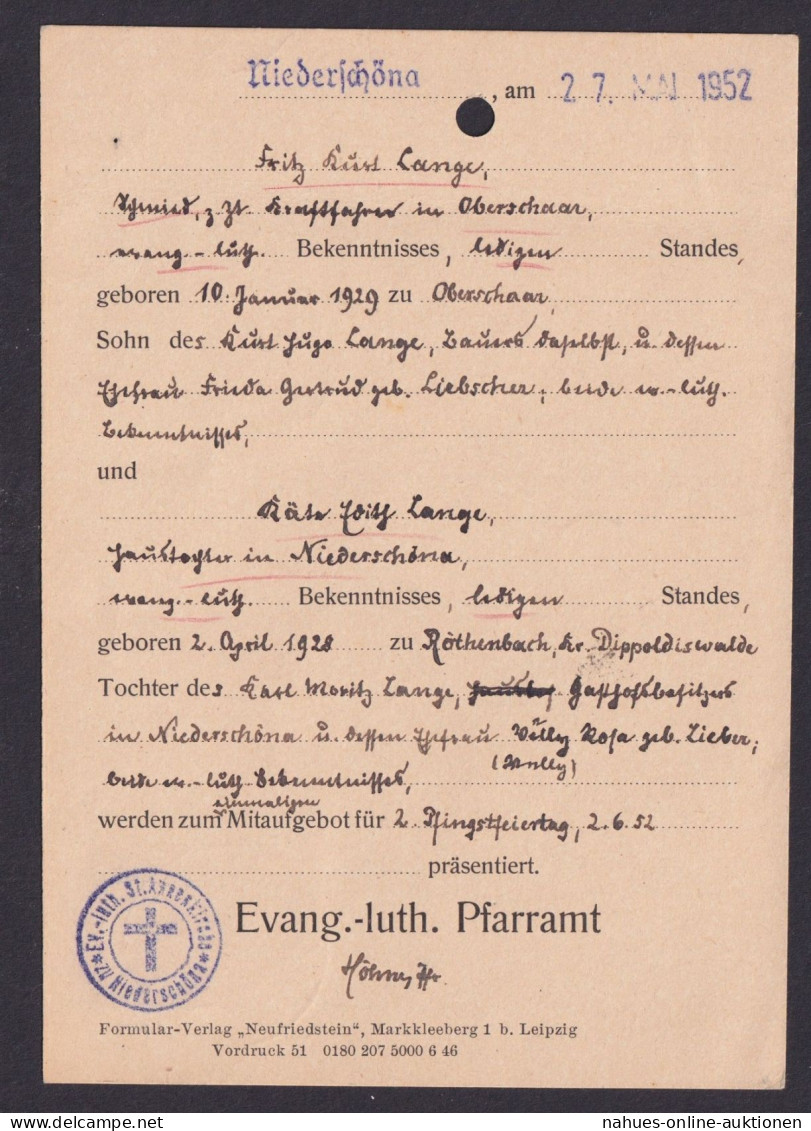 Niederschöna, am 27. MAI 1952
Fritz Kurt Lange,
Schmied, z. Zt. Kraftfahrer in Oberschaar,
evang.-luth. Bekenntnisses, ledigen Standes,
geboren 10. Januar 1929 zu Oberschaar,
Sohn des Kurt Hugo Lange, Bauers daselbst, u. dessen
Ehefrau Frieda Gertrud geb. Liebscher, beide ev.-luth.
Bekenntnisses,
und
Käte Edith Lange,
Haustochter in Niederschöna,
evang.-luth. Bekenntnisses, ledigen Standes,
geboren 2. April 1928 zu Röthenbach, Kr. Dippoldiswalde
Tochter des Karl Moritz Lange, Gasthofsbesitzers
in Niederschöna u. dessen Ehefrau Willy Rosa geb. Zieber;
(Welly)
beide ev.-luth. Bekenntnisses,
einmaligen
werden zum Mitaufgebot für 2. Pfingstfeiertag, 2.6.52
präsentiert.
Ev.-luth. St. Annenkirche
zu Niederschöna
Evang.-luth. Pfarramt
Pfr.
Formular-Verlag „Neufriedstein", Markkleeberg 1 b. Leipzig
Vordruck 51 0180 207 5000 6 46
nahues-online-auktionen